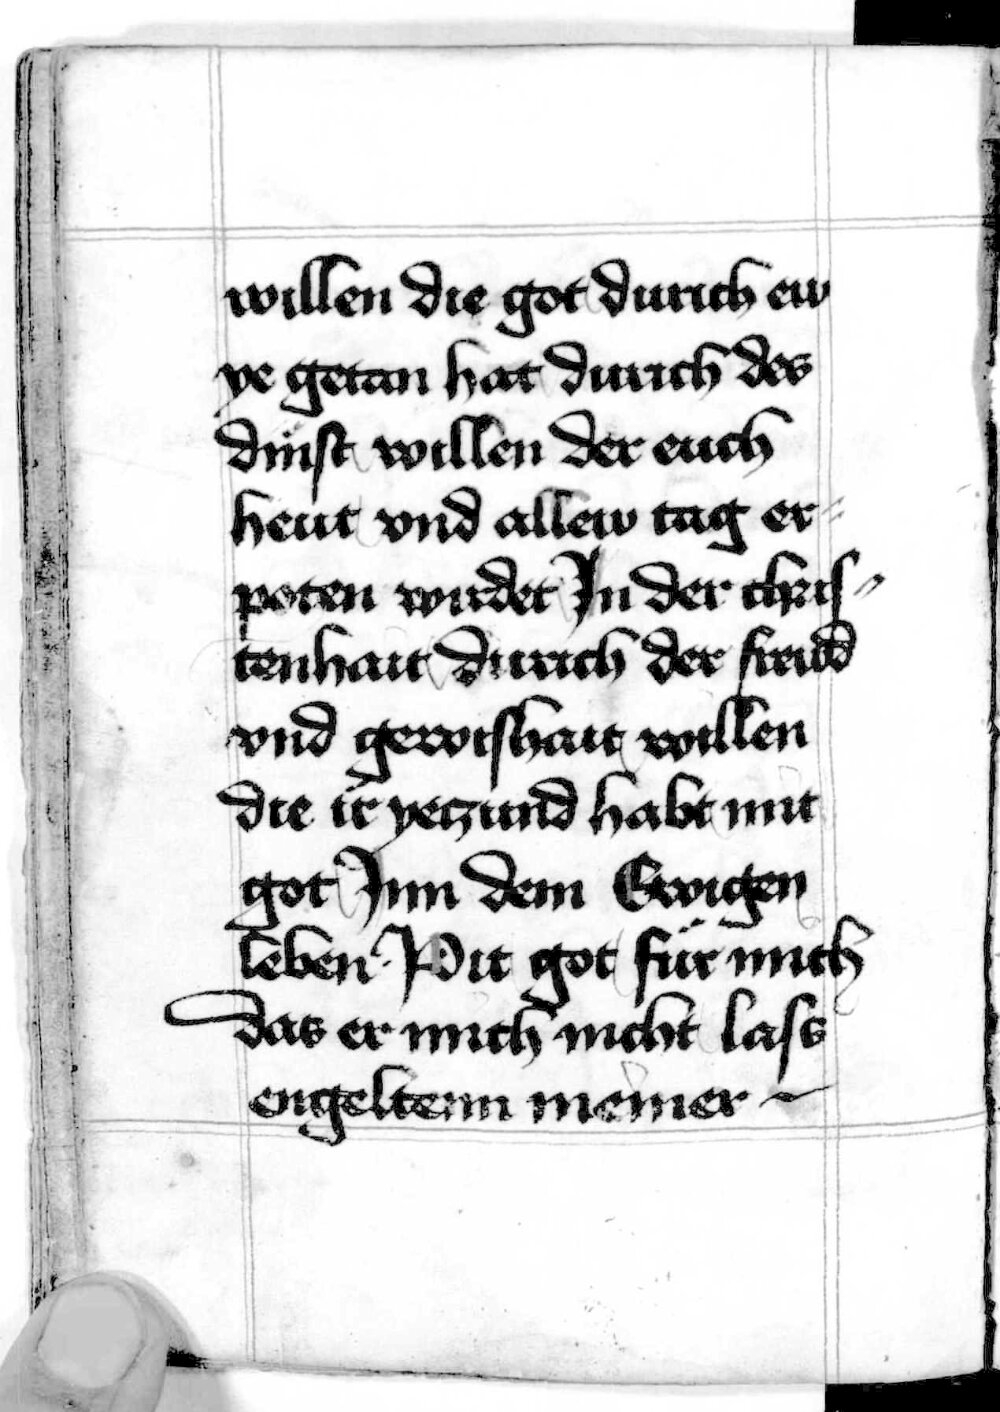 willen die got durich ew
ye getan hat durich des
dinst willen der euch
heut vnd allew tag er-
poten wirdet In der chris-
tenhait durich der freud
vnd gewishait willen
die ir yeczund habt mit
got Inn dem Ewigen
leben. Pit got für mich
das er mich nicht lass
engeltenn meiner